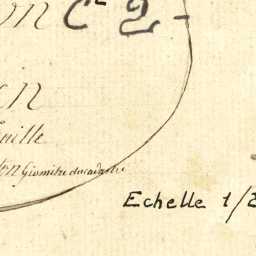 on C 2
en
uille
ten Géomètre du cadastre
Echelle 1/2